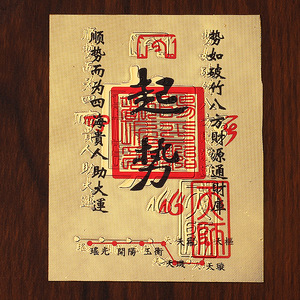 勢如破竹八方財源通財庫
起勢
順勢而为四海貴人助大運
天樞
瑤光 開陽 玉衡
天璣 天璇